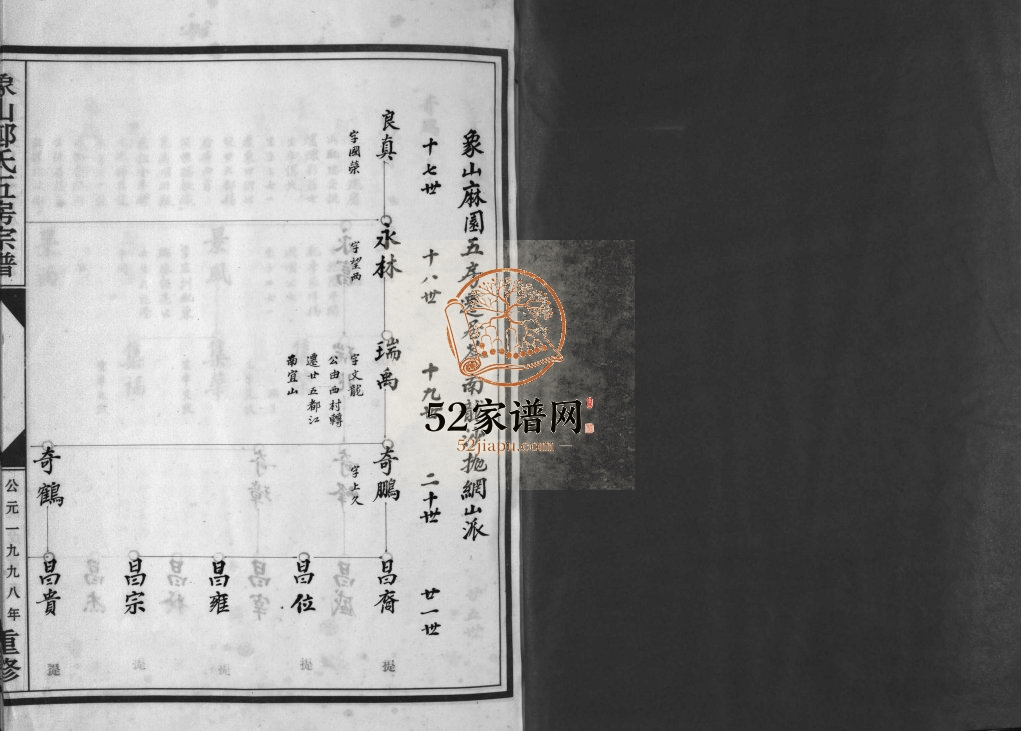 象山麻園五房遷居南龍沙抛網山派
十七世
十八世
十九世
二十世
廿一世
良真
字國榮
永林
字望西
瑞禹
字文龍
公由西村轉
遷廿五都江
南宜山
奇鵬
字上久
奇鶴
昌裔
昌位
昌雍
昌宗
昌貴
提
提
提
提
提
象山郭氏五房宗譜
公元一九九八年重修
52家谱网
52jiapu.com